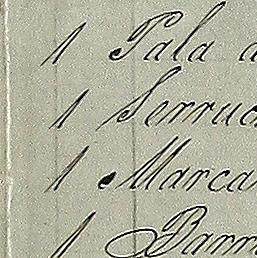 1 Pala d
1 Serruc
1 Marca
1 Barr